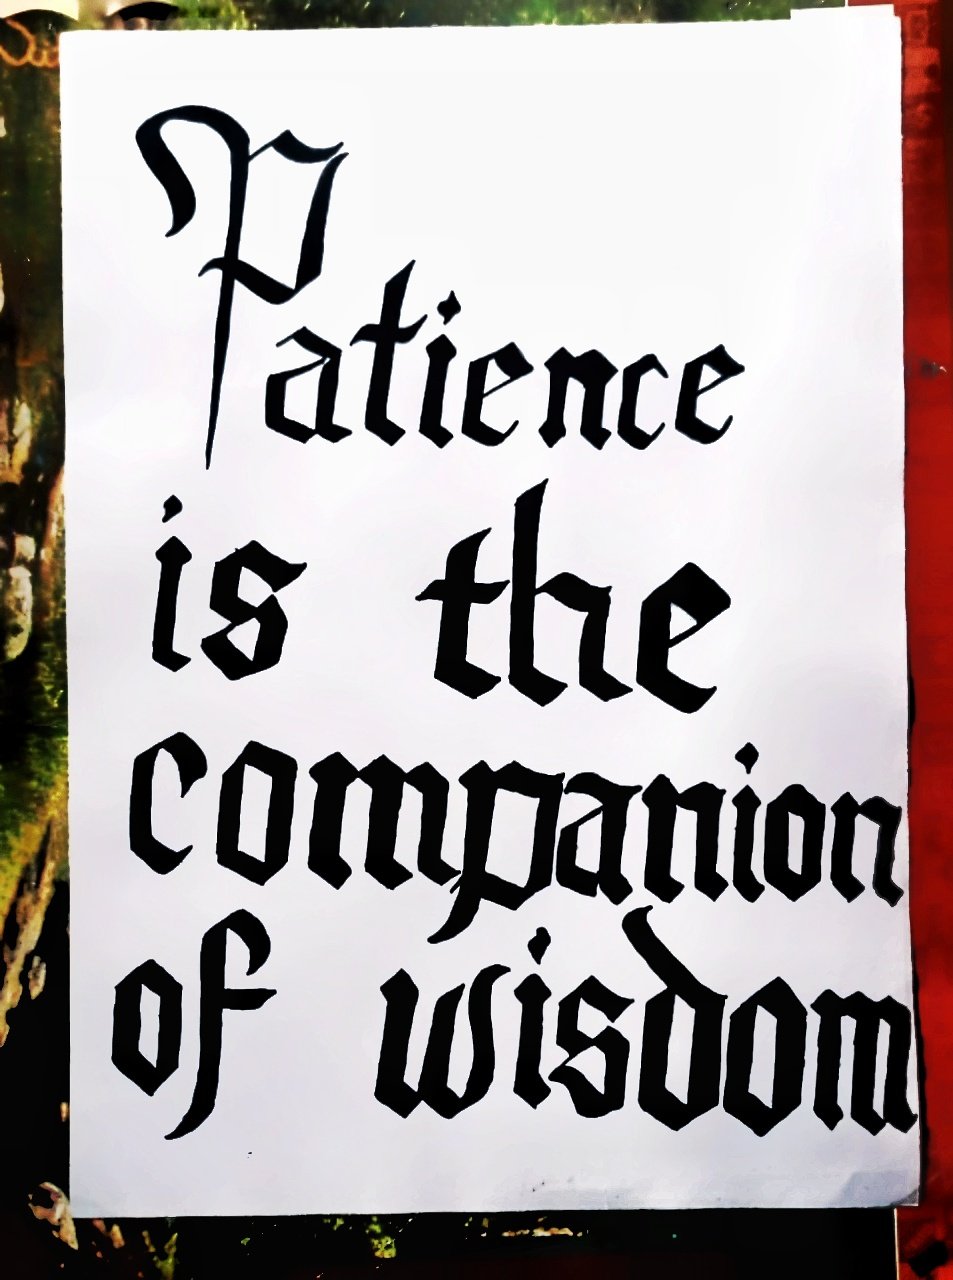 Patience
is the
companion
of wisdom